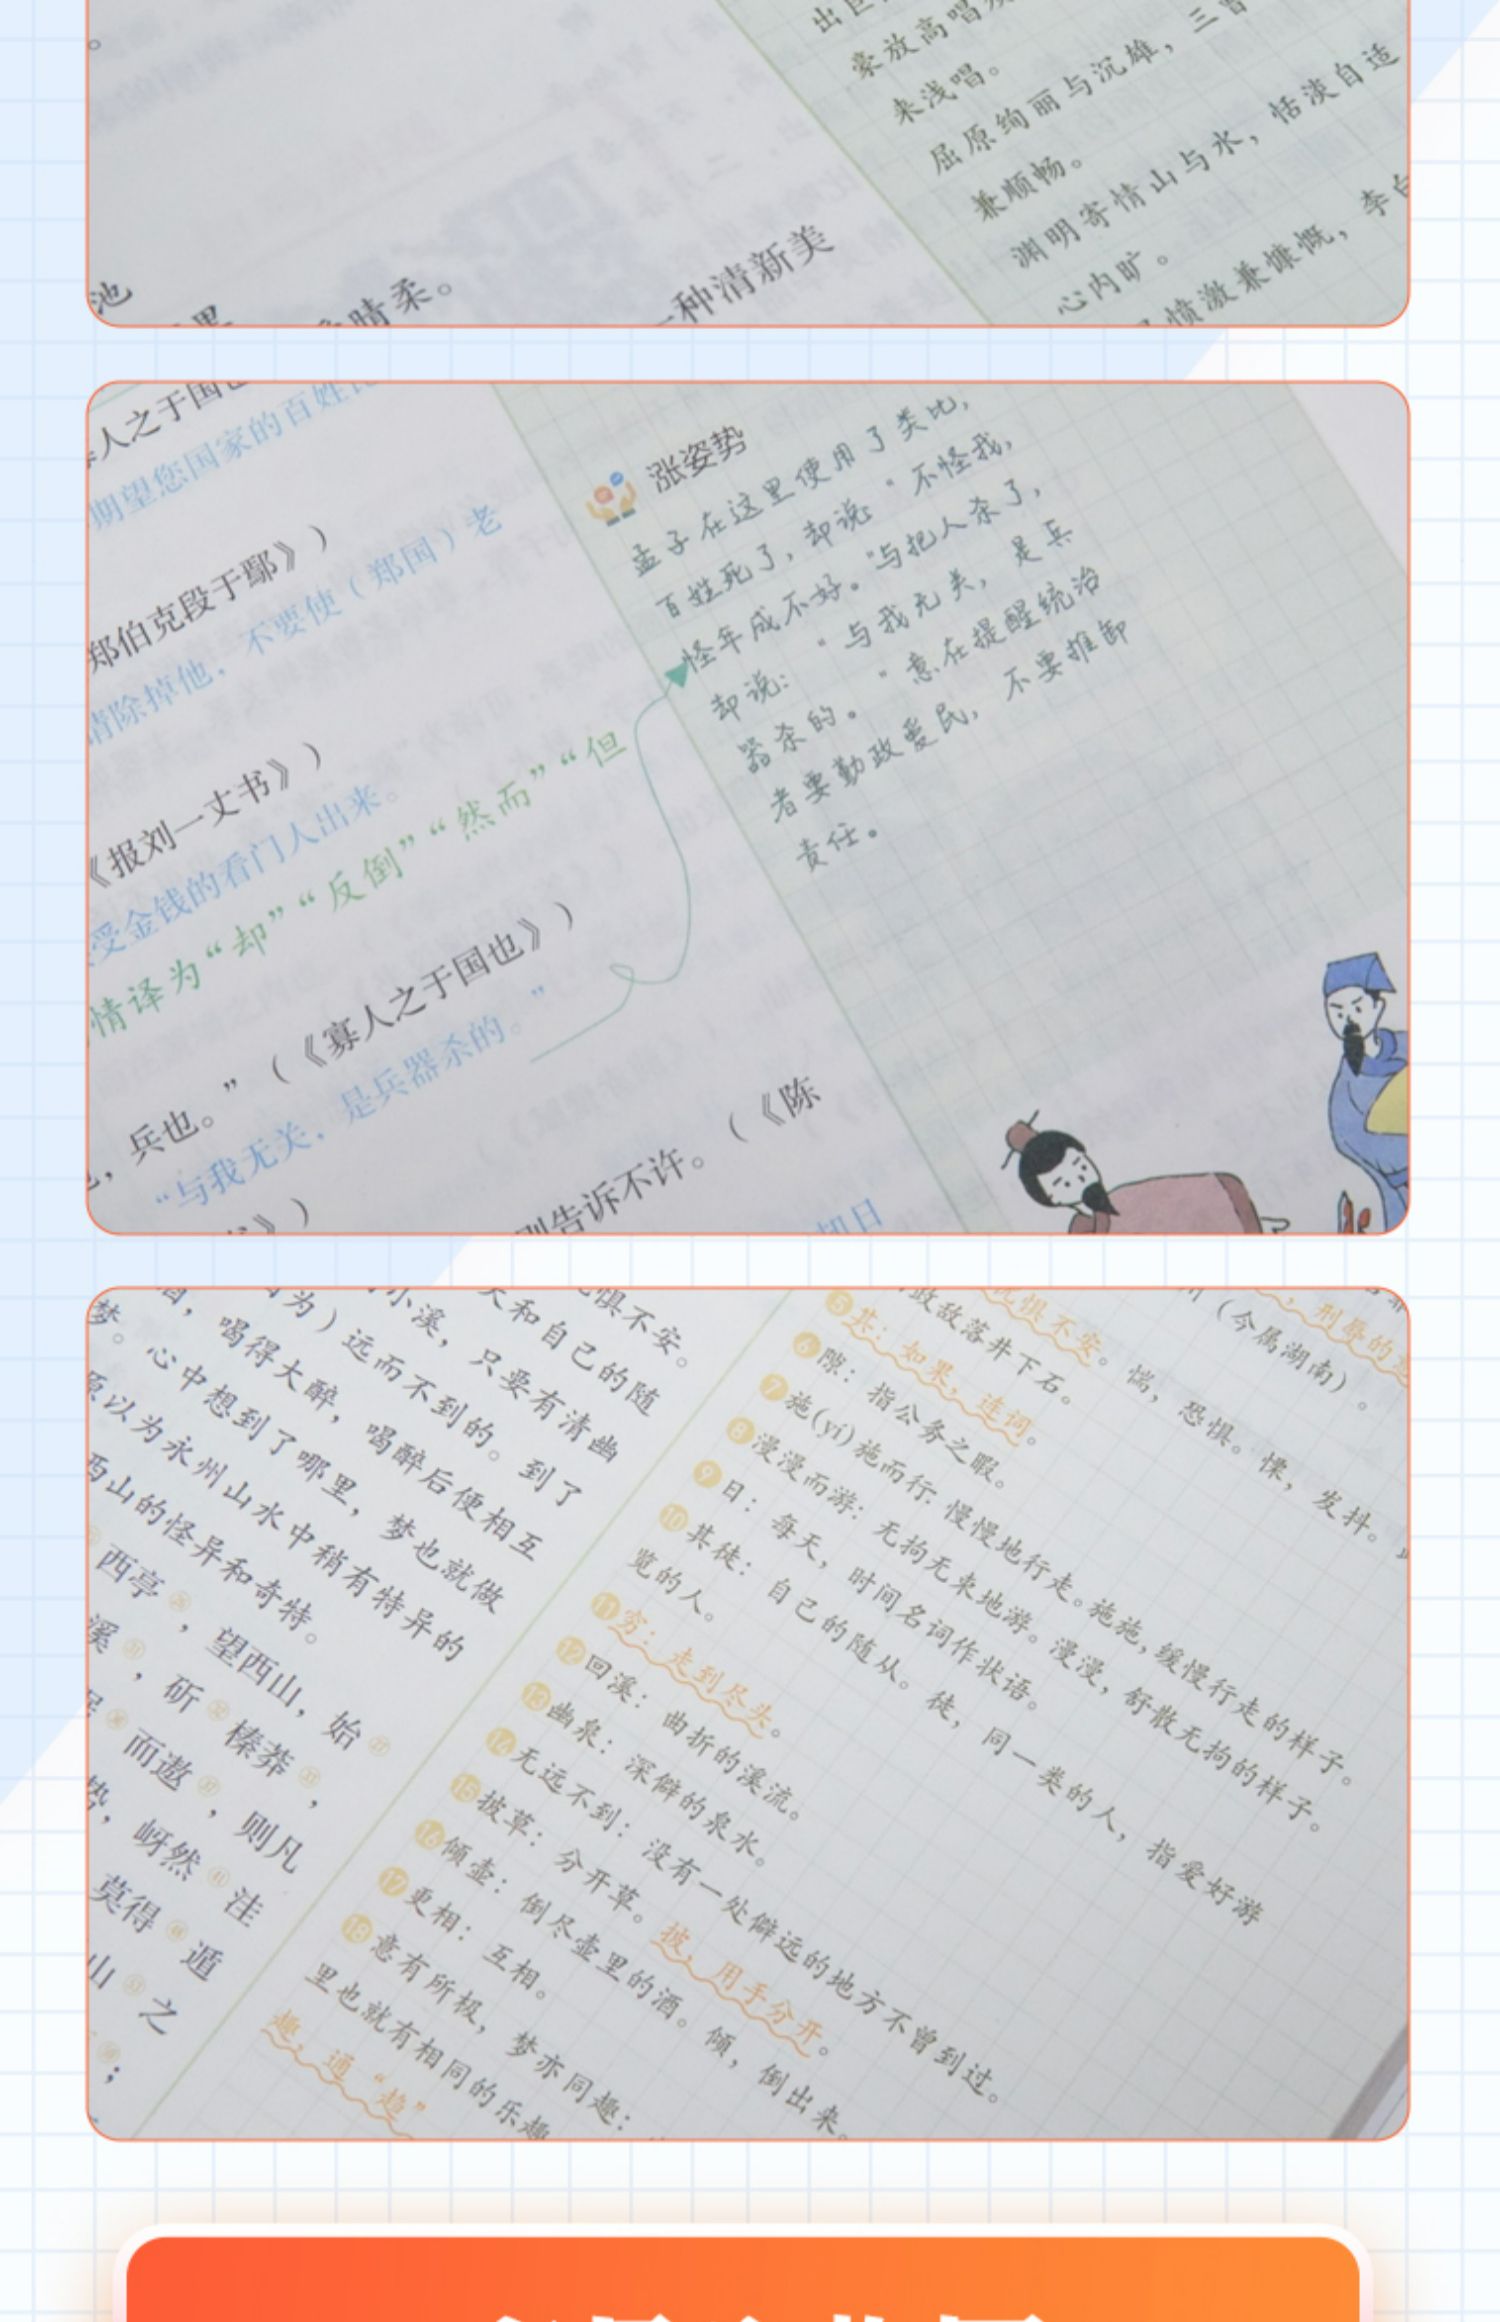 出巨
豪放高唱
来浅唱。
屈原绚丽与沉雄，三曹
兼顺畅。
渊明寄情山与水，恬淡自适
心内旷。
愤激兼慷慨，李白
池
晴柔。
一种清新美
人之于国也
期望您国家的百姓
郑伯克段于鄢》）
清除掉他，不要使（郑国）老
《报刘一丈书》）
受金钱的看门人出来。
情译为“却”“反倒”“然而”“但
，兵也。”（《寡人之于国也》）
“与我无关，是兵器杀的。”
则告诉不许。（《陈
书》）
涨姿势
孟子在这里使用了类比，
百姓死了，却说“不怪我，
怪年成不好。”与把人杀了，
却说：“与我无关，是兵
器杀的。”意在提醒统治
者要勤政爱民，不要推卸
责任。
惧不安。
天和自己的随
小溪，只要有清幽
为）远而不到的。到了
，喝得大醉，喝醉后便相互
梦。心中想到了哪里，梦也就做
原以为永州山水中稍有特异的
西山的怪异和奇特。
西亭，望西山，始
溪，斫榛莽，
而遨，则凡
势，岈然洼
莫得遁
山之
；
，刑辱的
（今属湖南）。
忧惧不安。惴，恐惧。慄，发抖。
政敌落井下石。
5 其：如果，连词。
6 隙：指公务之暇。
7 施(yí)施而行：慢慢地行走。施施，缓慢行走的样子。
8 漫漫而游：无拘无束地游。漫漫，舒散无拘的样子。
9 日：每天，时间名词作状语。
10 其徒：自己的随从。徒，同一类的人，指爱好游
览的人。
11 穷：走到尽头。
12 回溪：曲折的溪流。
13 幽泉：深僻的泉水。
14 无远不到：没有一处僻远的地方不曾到过。
15 披草：分开草。披，用手分开。
16 倾壶：倒尽壶里的酒。倾，倒出来。
17 更相：互相。
18 意有所极，梦亦同趣：
里也就有相同的乐趣
趣，通“趋”